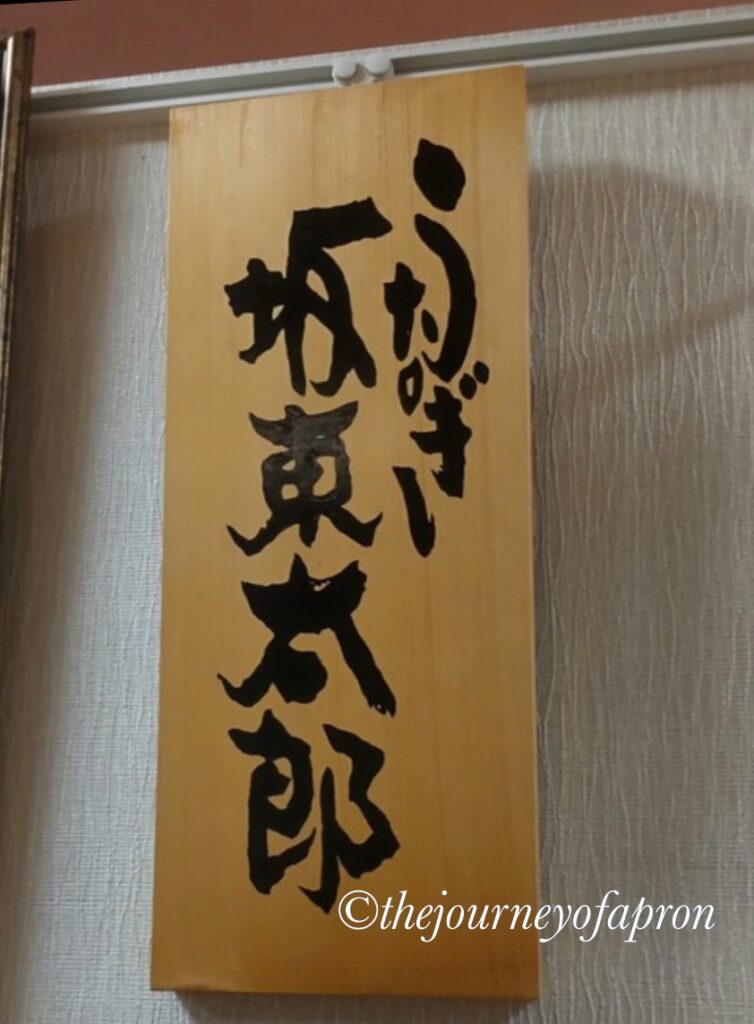 うなぎ
坂東太郎
©thejourneyofapron